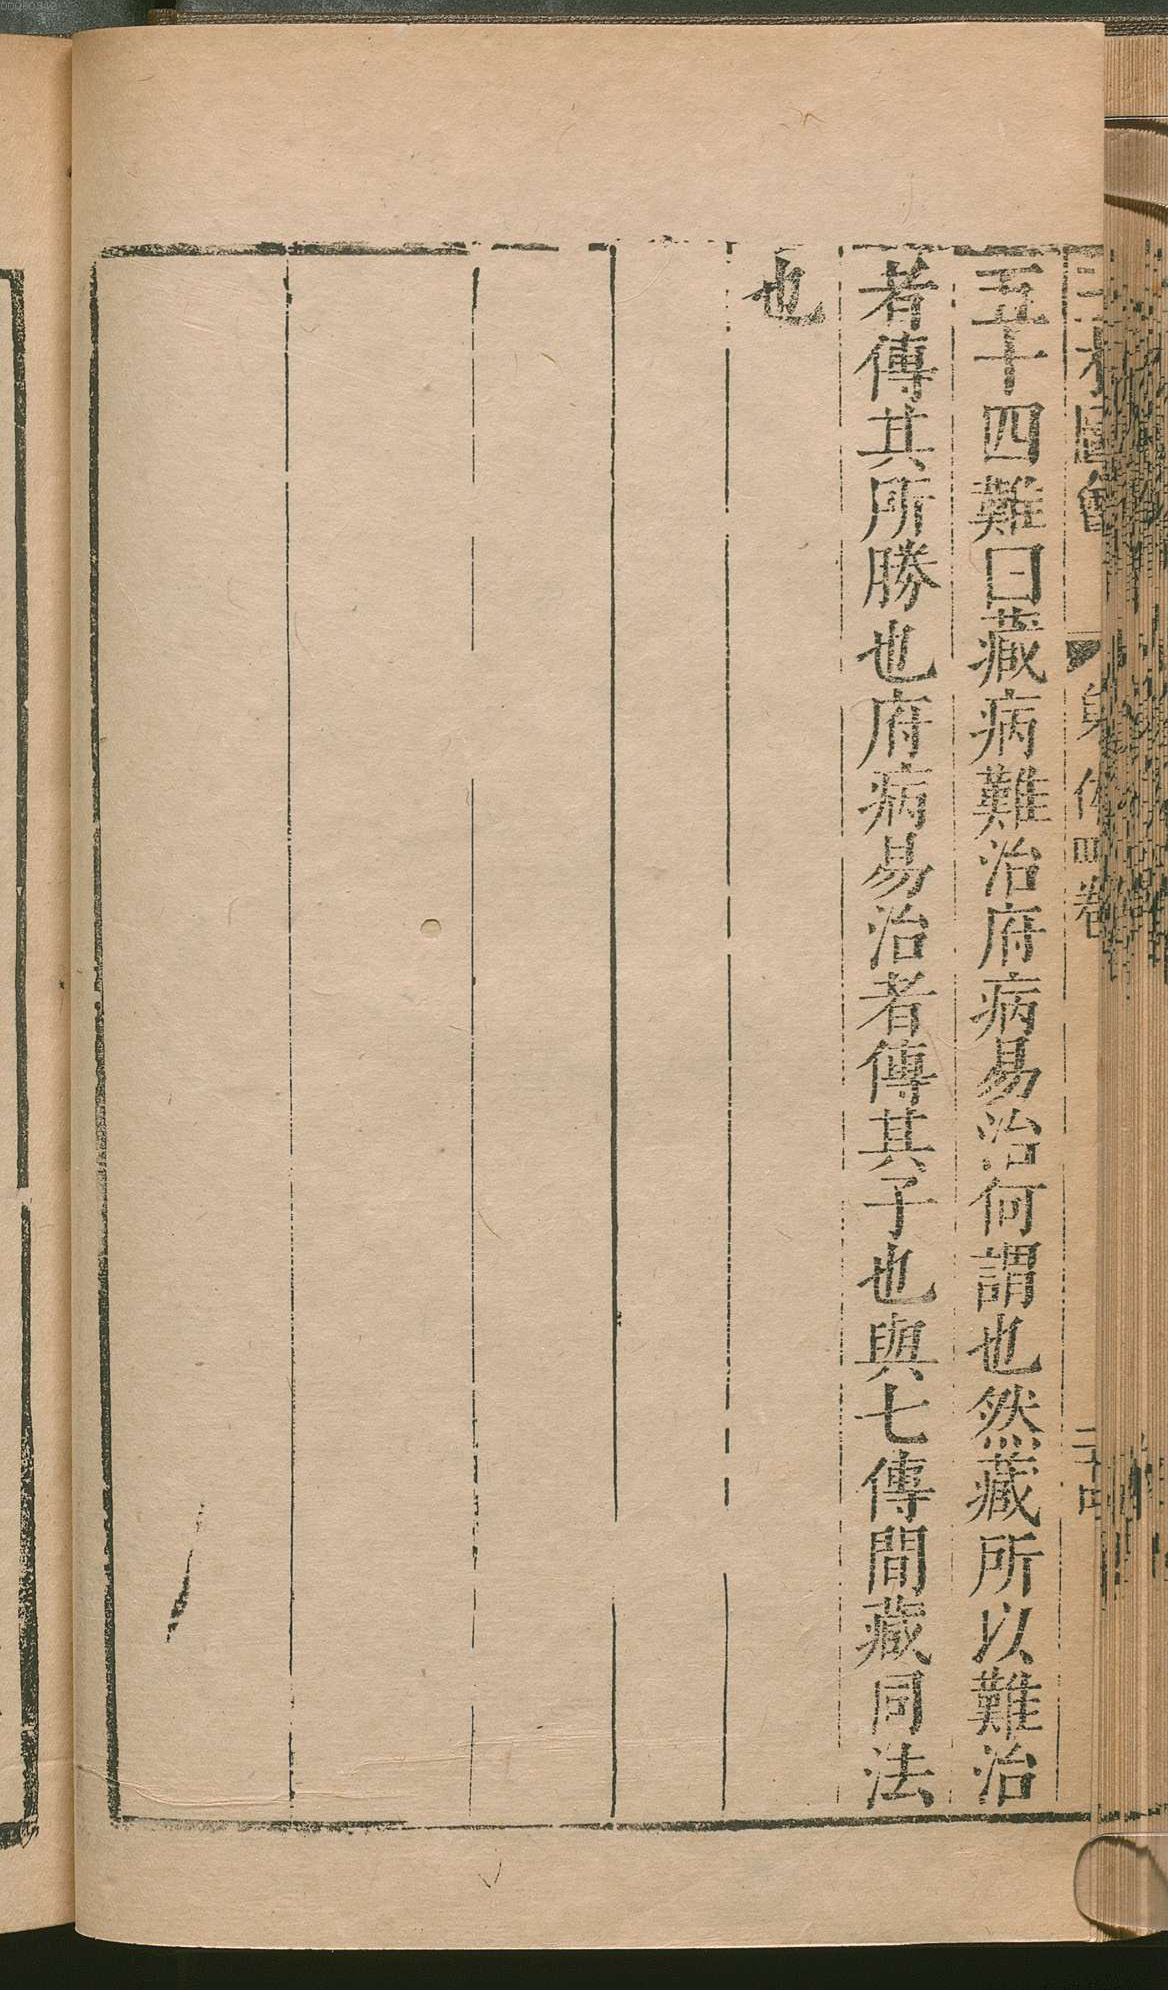 三才圖會 身體四卷
五十四難曰藏病難治府病易治何謂也然藏所以難治
者傳其所勝也府病易治者傳其子也與七傳間藏同法
也